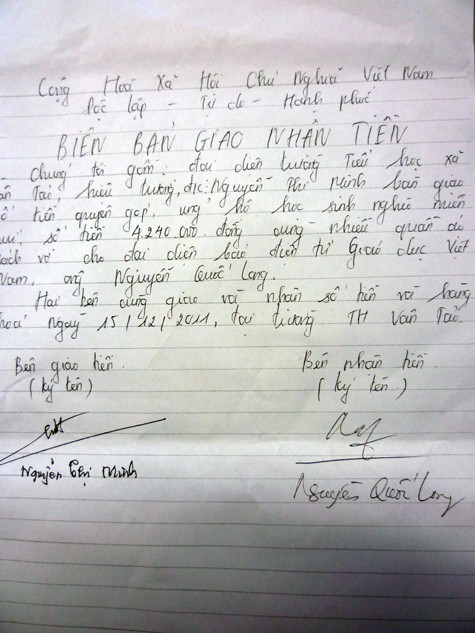 Cộng Hoà Xã Hội Chủ Nghĩa Việt Nam
Độc lập - Tự do - Hạnh phúc
BIÊN BẢN GIAO NHẬN TIỀN
- Chúng tôi gồm: đại diện trường Tiểu học xã
Vân Tảo, hiệu trưởng, đ/c: Nguyễn Thị Minh bàn giao
số tiền quyên góp, ủng hộ học sinh nghèo miền
núi, số tiền 4.240.000 đồng cùng nhiều quần áo
sách vở cho đại diện báo điện tử Giáo dục Việt
Nam, ông Nguyễn Quốc Long.
Hai bên cùng giao và nhận số tiền và hàng
hoá ngày 15/12/2011, tại trường TH Vân Tảo.
Bên giao tiền. Bên nhận tiền.
(ký tên) (ký tên)
Nguyễn Thị Minh
Nguyễn Quốc Long